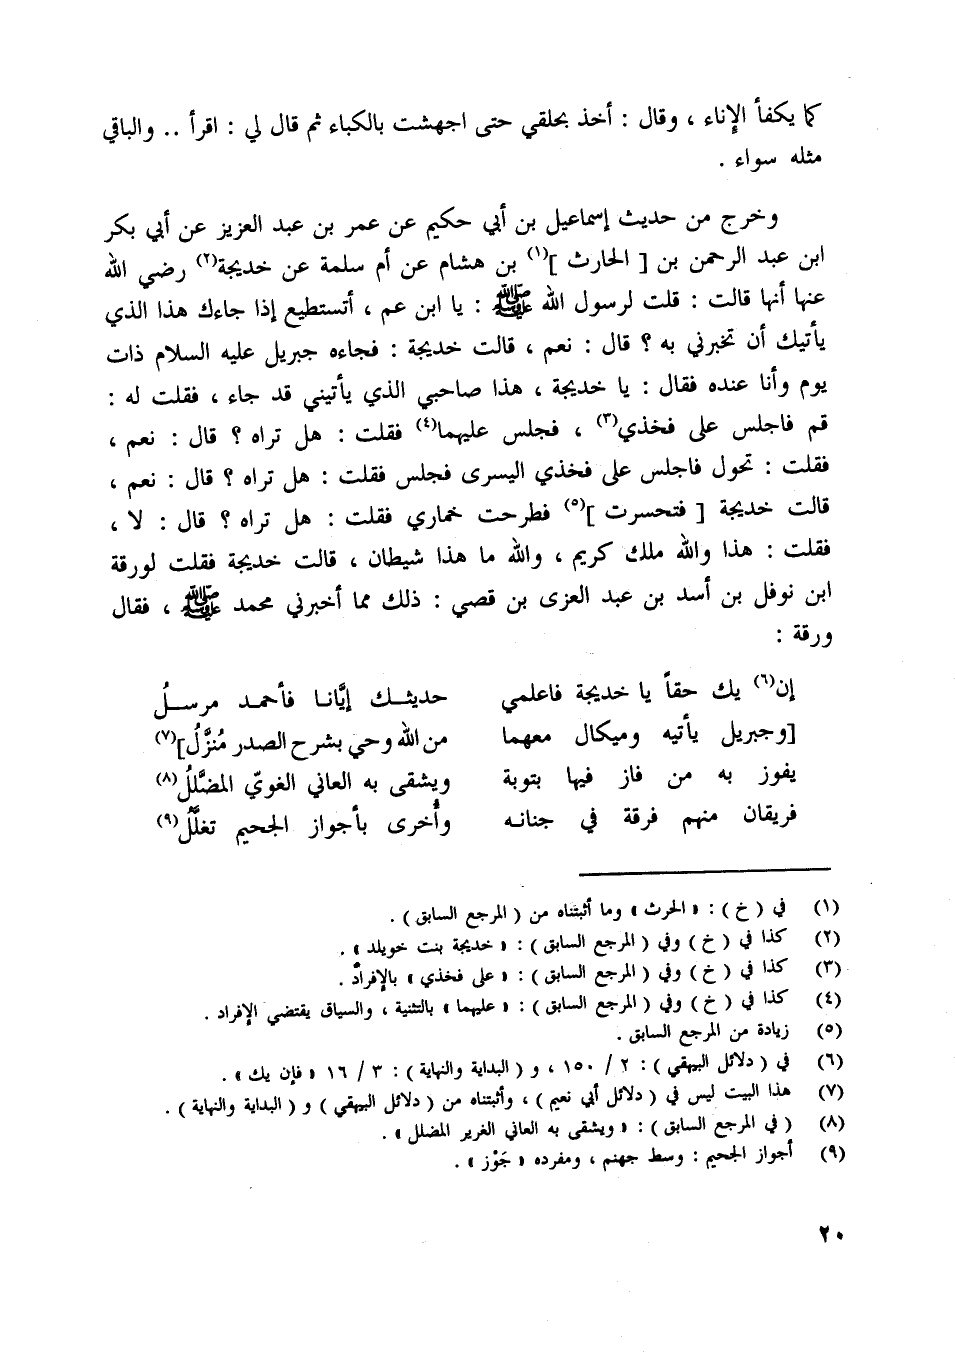 كما يكفأ الإناء ، وقال : أخذ بحلقي حتى اجهشت بالكباء ثم قال لي : اقرأ .. والباقي
مثله سواء .
وخرج من حديث إسماعيل بن أبي حكيم عن عمر بن عبد العزيز عن أبي بكر
ابن عبد الرحمن بن [ الحارث ](١) بن هشام عن أم سلمة عن خديجة(٢) رضي الله
عنها أنها قالت : قلت لرسول الله ﷺ : يا ابن عم ، أتستطيع إذا جاءك هذا الذي
يأتيك أن تخبرني به ؟ قال : نعم ، قالت خديجة : فجاءه جبريل عليه السلام ذات
يوم وأنا عنده فقال : يا خديجة ، هذا صاحبي الذي يأتيني قد جاء ، فقلت له :
قم فاجلس على فخذي(٣) ، فجلس عليهما(٤) فقلت : هل تراه ؟ قال : نعم ،
فقلت : تحول فاجلس على فخذي اليسرى فجلس فقلت : هل تراه ؟ قال : نعم ،
قالت خديجة [ فتحسرت ](٥) فطرحت خماري فقلت : هل تراه ؟ قال : لا ،
فقلت : هذا والله ملك كريم ، والله ما هذا شيطان ، قالت خديجة فقلت لورقة
ابن نوفل بن أسد بن عبد العزى بن قصي : ذلك مما أخبرني محمد ﷺ ، فقال
ورقة :
إن(٦) يك حقاً يا خديجة فاعلمي حديثـك إيَّانـا فأحمـد مرسـلُ
[وجبريل يأتيه وميكال معهما من الله وحي بشرح الصدر مُنزَّلُ](٧)
يفوز به من فاز فيها بتوبة ويشقى به العاني الغويّ المضَّللُ(٨)
فريقان منهم فرقة في جنانه وأُخرى بأجواز الجحيم تغلَّلُ(٩)
(١) في ( خ ) : « الحرث » وما أثبتناه من ( المرجع السابق ) .
(٢) كذا في ( خ ) وفي ( المرجع السابق ) : « خديجة بنت خويلد » .
(٣) كذا في ( خ ) وفي ( المرجع السابق ) : « على فخذي » بالإفراد .
(٤) كذا في ( خ ) وفي ( المرجع السابق ) : « عليهما » بالتثنية ، والسياق يقتضي الإفراد .
(٥) زيادة من المرجع السابق .
(٦) في ( دلائل البيهقي ) : ٢ / ١٥٠ ، و ( البداية والنهاية ) : ٣ / ١٦ « فإن يك » .
(٧) هذا البيت ليس في ( دلائل أبي نعيم ) ، وأثبتناه من ( دلائل البيهقي ) و ( البداية والنهاية ) .
(٨) ( في المرجع السابق ) : « ويشقى به العاني الغرير المضلل » .
(٩) أجواز الجحيم : وسط جهنم ، ومفرده « جَوْز » .
٢٠